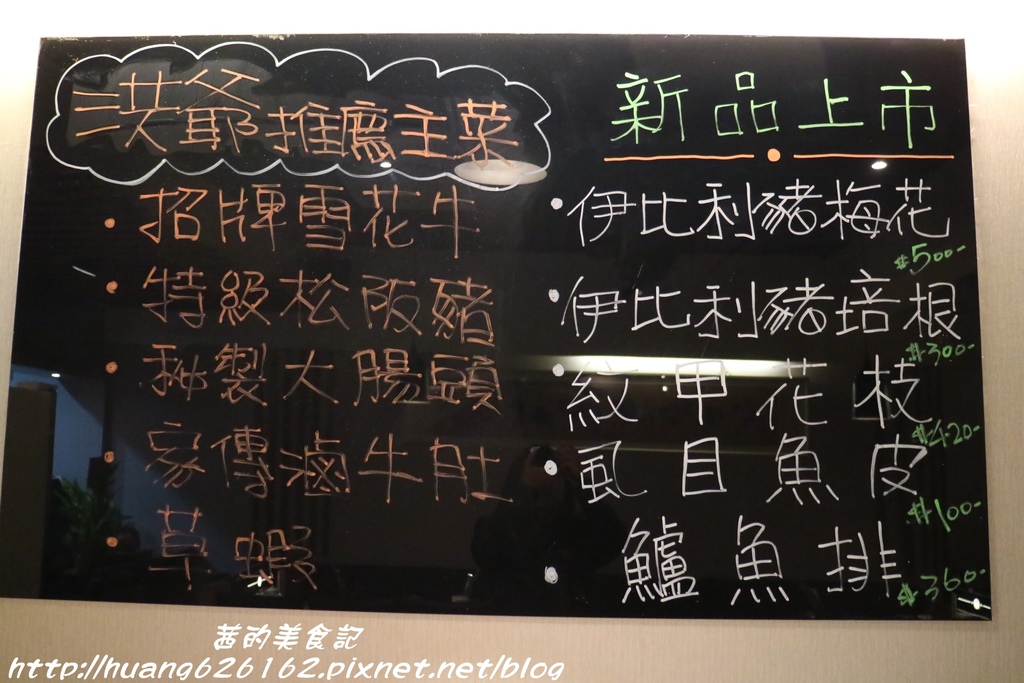 三洪爺推薦主菜
·招牌雪花牛
·特級松阪豬
·秘製大腸頭
·家傳滷牛肚
·草蝦
新品上市
·伊比利豬梅花
$500-
·伊比利豬培根
$300-
·紋甲花枝
$420-
·虱目魚皮
$100-
·鱸魚排
$360-
茜的美食記
http://huang626162.pixnet.net/blog